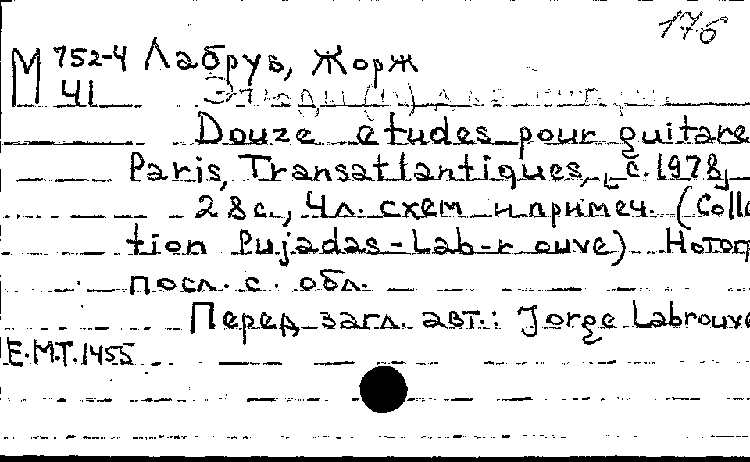 176
М 752-4 Лабрув, Жорж
41 Этюды (12) для гитары.
Douze études pour guitare
Paris, Transatlantiques, [с. 1978]
28с., 4л. схем и примеч. (Colle
tion Pujadas-Lab-r ouve) Нотогр
посл. с. обл.
Перед загл. авт.: Jorge Labrouve
E.M.T. 1455